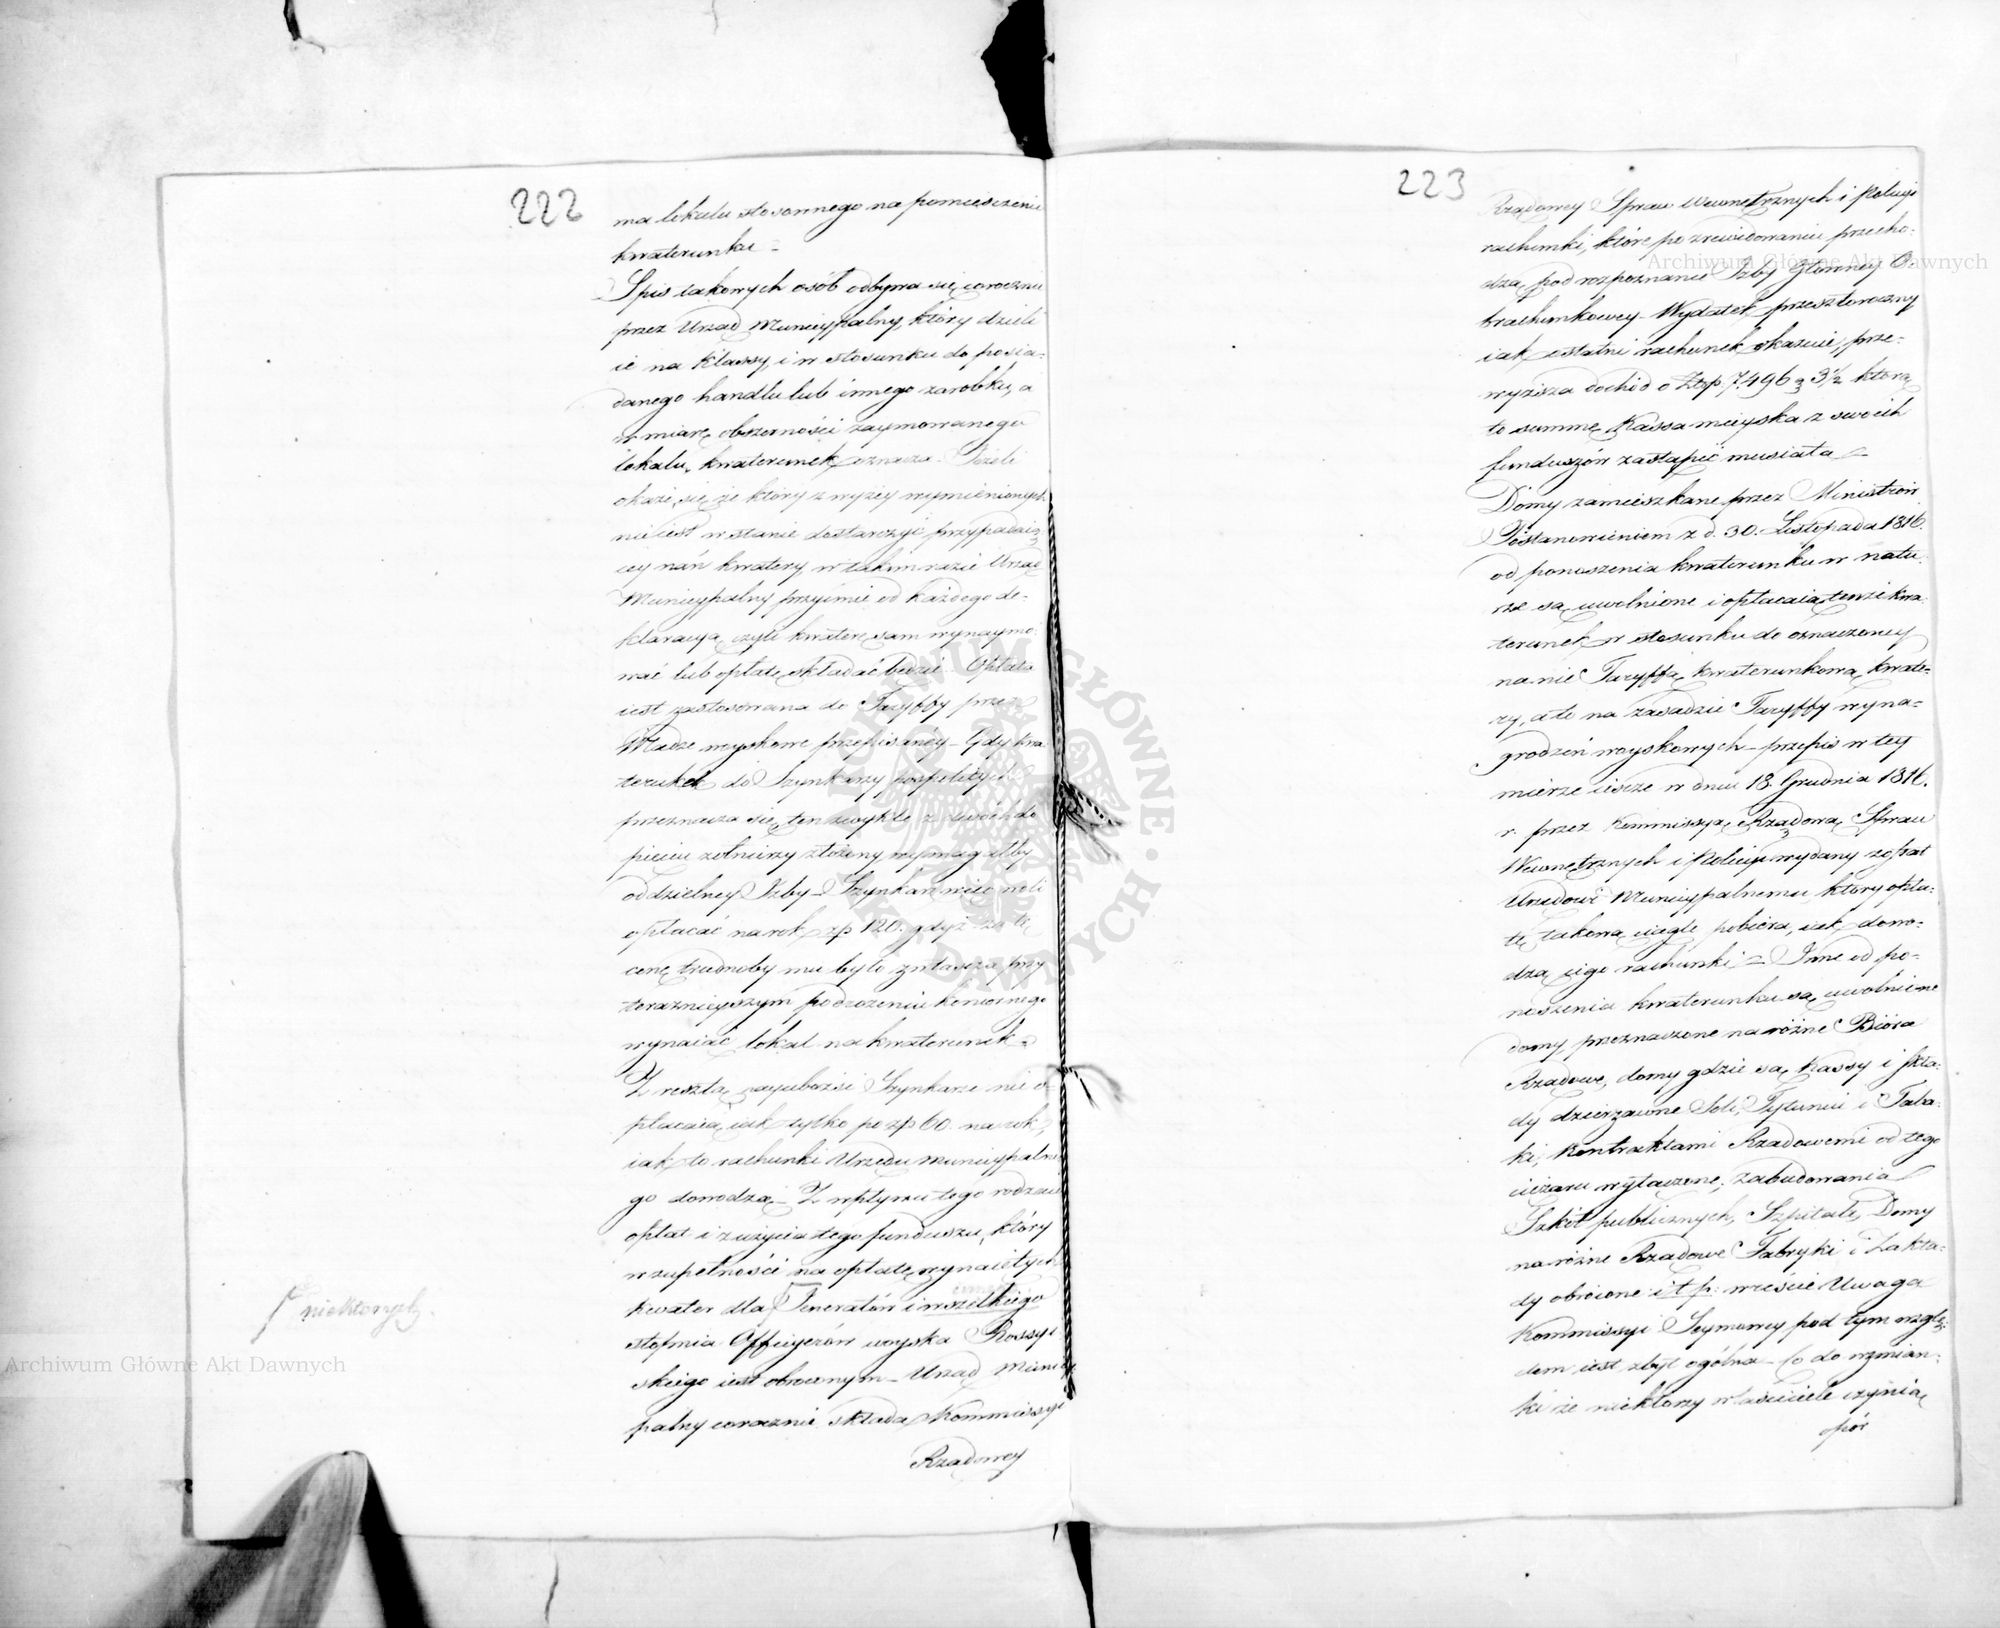 222
ma lokalu stosownego na pomieszczenie
kwaterunku –
Spis takowych osób odbywa się corocznie
przez Urząd Municypalny, który dzieli
ie na Klassy, i w stosunku do posia-
danego handlu lub innego zarobku, a
w miarę obszerności zaymowanego
lokalu, kwaterunek oznacza. Jeżeli
okaże się że który z wyżey wymienionych
nie iest w stanie dostarczyć przypadaią-
cey nań kwatery, w takim razie Urząd
Municypalny przyimie od każdego de-
klaracyą, czyli kwaterę sam wynaymo-
wać lub opłatę składać będzie. Opłata
iest zastosowana do Taryffy przez
Władze woyskowe przepisanéy – Gdy kwa-
terunek do Szynkarzy pospolitych
przeznacza się, ten zwykle z dwóch do
pięciu żołnierzy złożony wymagałby
oddzielney Izby – Szynkarz więc woli
opłacać na rok zp 120. gdyż za tę
cenę trudnoby mu było zwłaszcza przy
teraznieyszym podrożeniu komornego
wynaiąć lokal na kwaterunek –
Z resztą nayubożsi Szynkarze nie o-
płacaią iak tylko po zp 60. na rok,
iak to rachunki Urzędu Municypalne-
go dowodzą – Z wpływu tego rodzaiu
opłat i z użycia tego funduszu, który
w zupełności na opłatę wynaiętych
kwater dla Generałów i wszelkiego
niektorych
stopnia Officyerów woyska Rossyi-
skiego iest obrócanym – Urząd Munic
palny corocznie składa Kommissyi
Rządowey
223
Rządowey Spraw Wewnętrznych i Policyi
rachunki, które po zrewidowaniu przecho-
dzą pod rozpoznanie Izby Głowney O-
brachunkowey – Wydatek przeszłoroczny
iak ostatni rachunek okazuie, prze-
wyższa dochód o Złp. 7496 g 3½ którą
to summę Kassa mieyska z swoich
funduszów zastąpić musiała –
Domy zamieszkane przez Ministrów
Postanowieniem z d. 30. Listopada 1816.
od ponoszenia kwaterunku w natu-
rze są uwolnione i opłacaią tenże kwa-
terunek w stosunku do oznaczoney
na nie Taryffą kwaterunkową kwate-
ry, a to na zasadzie Taryffy wyna-
grodzeń woyskowych – przepis w tey
mierze ieszcze w dniu 18. Grudnia 1816.
r. przez Kommissyą Rządową Spraw
Wewnętrznych i Policyi wydany został
Urzędowi Municypalnemu który opła-
tę takową ciągle pobiera, iak dowo-
dzą iego rachunki – Inne od po-
noszenia kwaterunku są uwolnione
domy, przeznaczone na różne Bióra
Rządowe, domy gdzie są Kassy i skła-
dy dzierżawne Soli, Tytuniu i Taba-
ki, Kontraktami Rządowemi od tego
ciężaru wyłączone; zabudowania
Szkół publicznych, Szpitale, Domy
na różne Rządowe Fabryki i Zakła-
dy obrócone i t. p: wreście Uwaga
Kommissyi Seymowey pod tym wzglę-
dem iest zbyt ogólna – Co do wzmian-
ki że niektorzy właściciele czynią
opór
Archiwum Główne Akt Dawnych
Archiwum Główne Akt Dawnych
ARCHIWUM GŁÓWNE AKT DAWNYCH